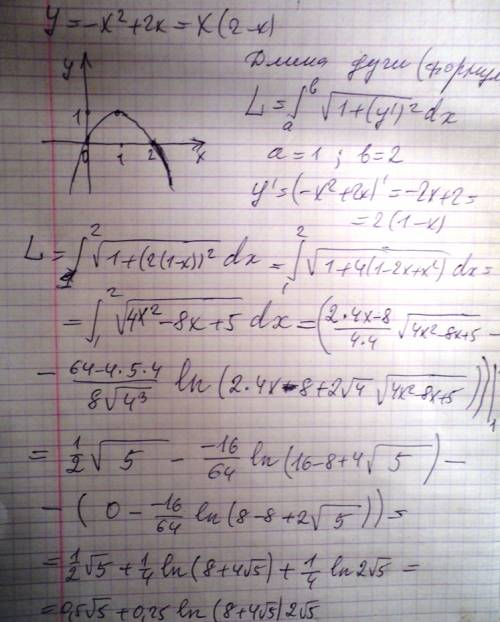 y = -x² + 2x = x(2-x)
Длина дуги (формул
y
1
0 1 2 x
L = ∫ₐᵇ √(1+(y')²) dx
a = 1 ; b = 2
y' = (-x²+2x)' = -2x+2 =
= 2(1-x)
L = ∫₁² √(1+(2(1-x))²) dx = ∫₁² √(1+4(1-2x+x²)) dx =
= ∫₁² √(4x²-8x+5) dx = ( (2·4x-8)/(4·4) √(4x²-8x+5) -
- (64-4·5·4)/(8√4³) ln(2·4x-8+2√4 √(4x²-8x+5)) )|₁
= 1/2 √5 - (-16)/64 ln(16-8+4√5) -
- ( 0 - (-16)/64 ln(8-8+2√5)) =
= 1/2 √5 + 1/4 ln(8+4√5) + 1/4 ln 2√5 =
= 0,5√5 + 0,25 ln(8+4√5) 2√5